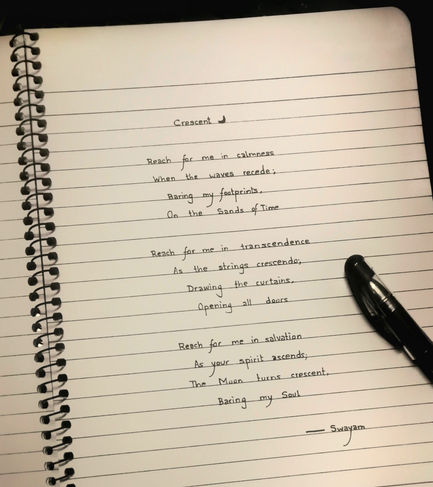 Crescent
Reach for me in calmness
When the waves recede;
Baring my footprints,
On the Sands of Time
Reach for me in transcendence
As the strings crescendo;
Drawing the curtains,
Opening all doors
Reach for me in salvation
As your spirit ascends;
The Moon turns crescent,
Baring my Soul
— Swayam